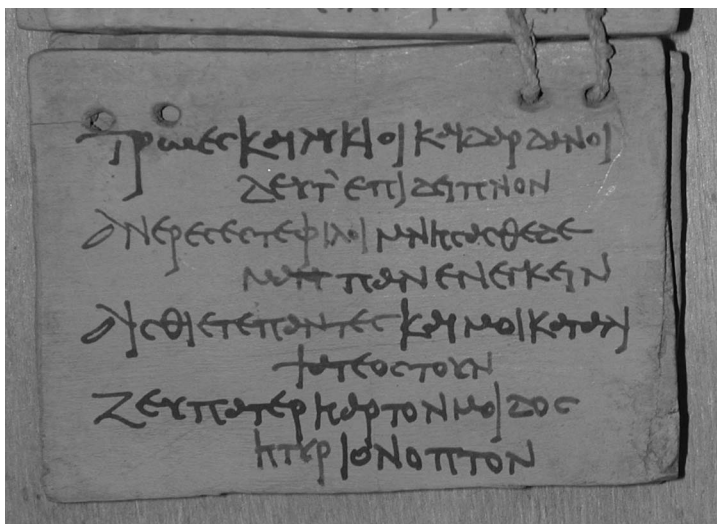 Τρωες και Λυκιοι και Δαρδανοι
δευτ' επι δειπνον
ανερες εστε φιλοι μνησασθε δε
μαππων ενεγκειν
αισθιετε παντες και μοι καταλι
ψατε οστουν
Ζευ πατερ η αρτον μοι δος
η τυριον οπτον